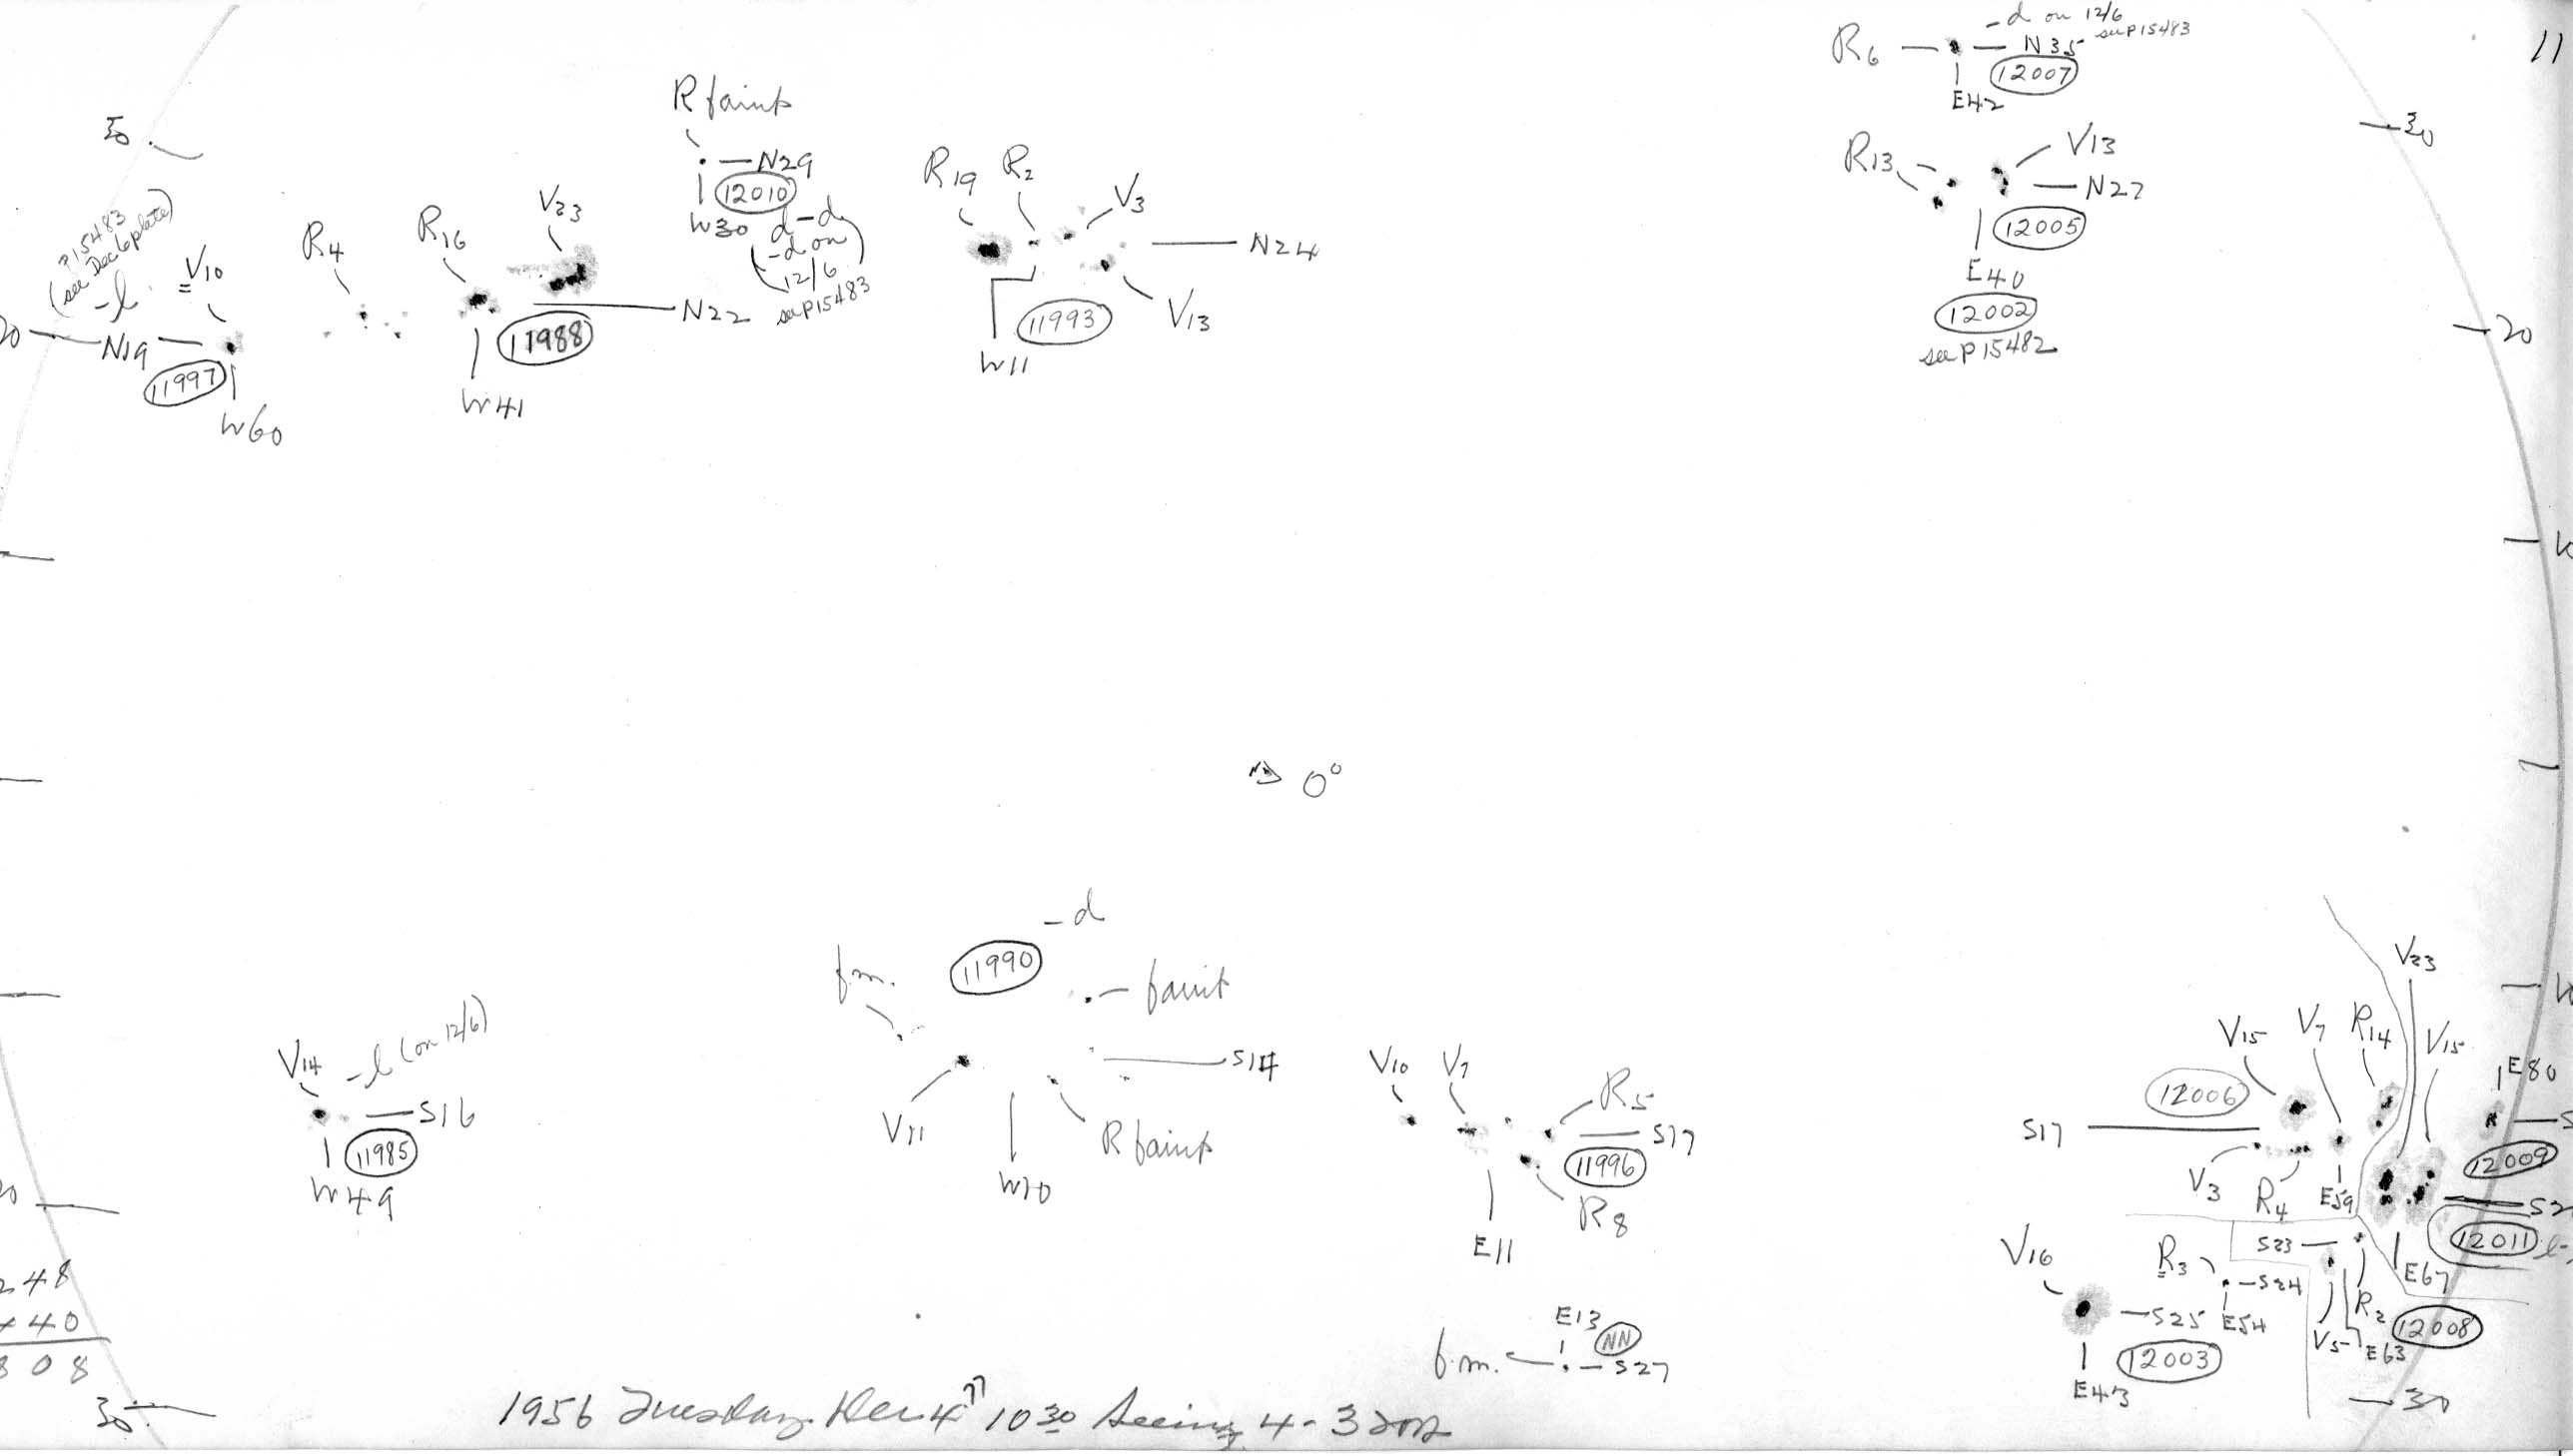 11
-d on 12/6
see P15483
R6 N35
12007
E42
30
30
R faint
N29
12010
W30 d-d
(-d on
12/6)
see P15483
R19 R2 V3
N24
11993
V13
W11
R13 V13
N27
12005
E40
12002
see P 15482
P15483
(see Dec 6 plate)
-l V10
20 N19
11997
W60
R4 R16 V23
N22
11988
W41
20
10
0°
-d
11990
f.m. faint
S14
V11 R faint
W10
V14 -l (on 12/6)
S16
11985
W49
V10 V7 R5
S17
11996
R8
E11
E13 NN
f.m. S27
V23
10
V15 V7 R14 V15
E80
12006
S17
12009
V3 R4 E59
S23
12011
E67
V16 R3 S24
S25 E54
R2
12008
V5 E63
12003
E43
30
248
40
808
30
1956 Tuesday Dec 4 10 30 Seeing 4-3